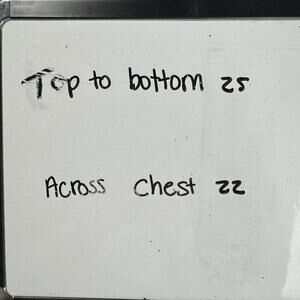 Top to bottom 25
Across Chest 22